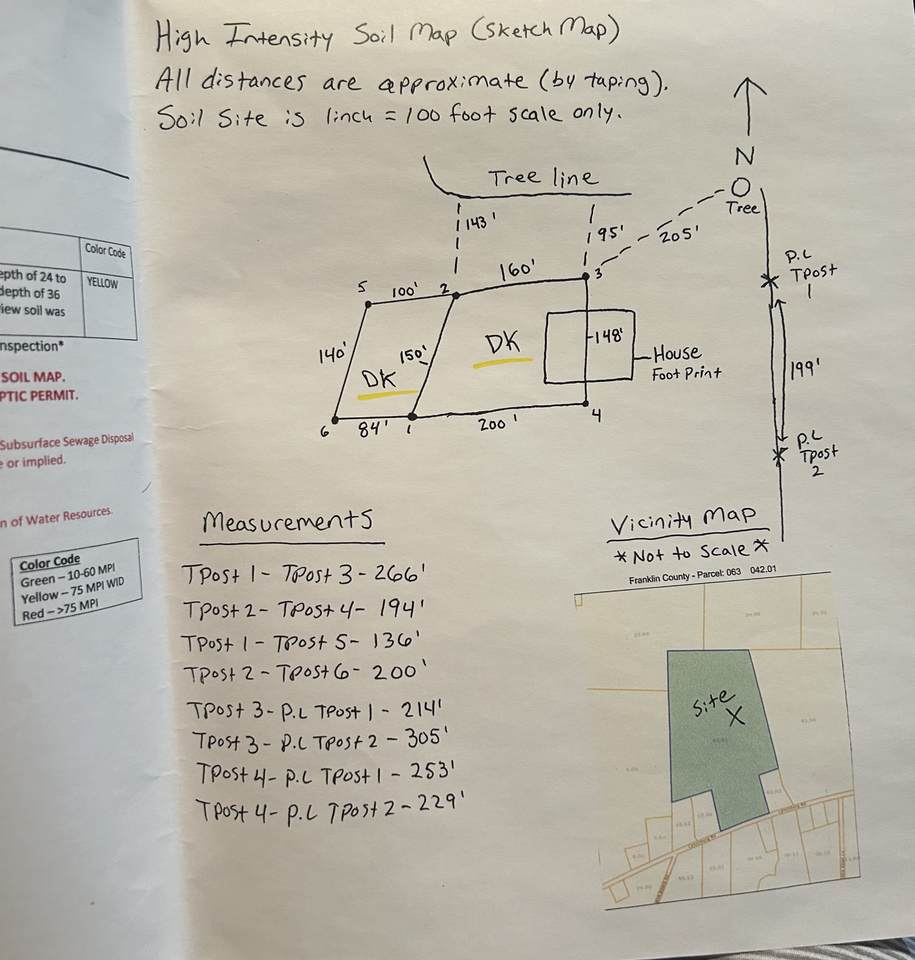 High Intensity Soil Map (Sketch Map)
All distances are approximate (by taping).
Soil Site is 1inch = 100 foot scale only.
N
Tree
Tree line
143'
95'
205'
P.L
Tpost
1
199'
P.L
Tpost
2
160'
3
2
100'
5
140'
150'
DK
DK
148'
House
Foot Print
6
84'
1
200'
4
Color Code
epth of 24 to
YELLOW
depth of 36
iew soil was
nspection*
SOIL MAP.
PTIC PERMIT.
Subsurface Sewage Disposal
e or implied.
n of Water Resources.
Color Code
Green – 10-60 MPI
Yellow – 75 MPI WID
Red – >75 MPI
Measurements
TPost 1 - TPost 3 - 266'
TPost 2 - TPost 4 - 194'
TPost 1 - TPost 5 - 136'
TPost 2 - TPost 6 - 200'
TPost 3 - P.L TPost 1 - 214'
TPost 3 - P.L TPost 2 - 305'
TPost 4 - P.L TPost 1 - 253'
TPost 4 - P.L TPost 2 - 229'
Vicinity Map
* Not to Scale *
Franklin County - Parcel: 063 042.01
Site
X